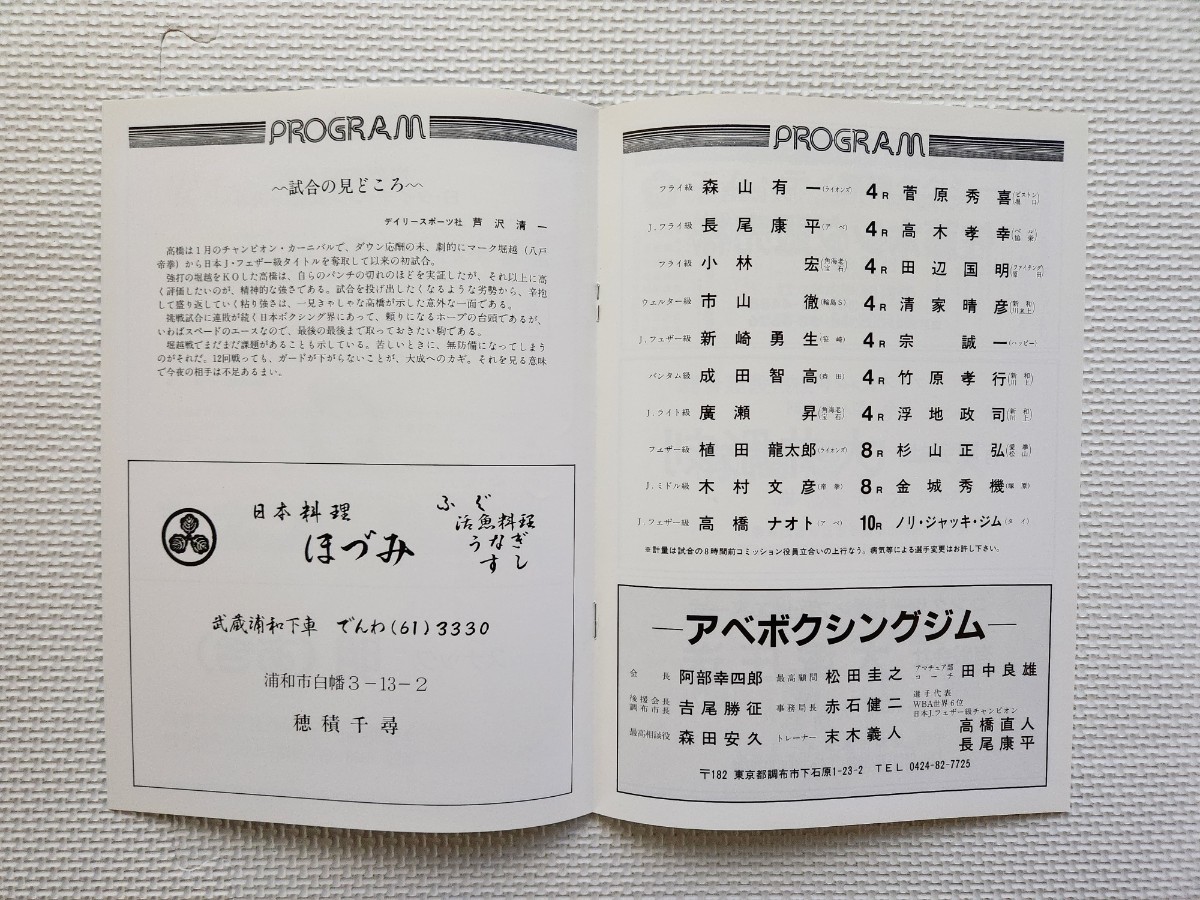 PROGRAM
〜試合の見どころ〜
デイリースポーツ社 芦沢清一
高橋は1月のチャンピオン・カーニバルで、ダウン応酬の末、劇的にマーク堀越(八戸
帝拳)から日本J・フェザー級タイトルを奪取して以来の初試合。
強打の堀越をKOした高橋は、自らのパンチの切れのほどを実証したが、それ以上に高
く評価したいのが、精神的な強さである。試合を投げ出したくなるような劣勢から、辛抱
して盛り返していく粘り強さは、一見きゃしゃな高橋が示した意外な一面である。
挑戦試合に連敗が続く日本ボクシング界にあって、頼りになるホープの台頭であるが、
いわばスペードのエースなので、最後の最後まで取っておきたい駒である。
堀越戦でまだまだ課題があることも示している。苦しいときに、無防備になってしまう
のがそれだ。12回戦っても、ガードが下がらないことが、大成へのカギ。それを見る意味
で今夜の相手は不足あるまい。
日本料理
ほづみ
ふぐ
活魚料理
うなぎ
すし
武蔵浦和下車 でんわ(61)3330
浦和市白幡3-13-2
穂積千尋
PROGRAM
フライ級 森山有一(ライオンズ) 4R 菅原秀喜(ピストン堀口)
J.フライ級 長尾康平(アベ) 4R 高木孝幸(ベル協栄)
フライ級 小林宏(角海老宝石) 4R 田辺国明
ウェルター級 市山徹(輪島S) 4R 清家晴彦(新和川上)
J.フェザー級 新崎勇生(笹崎) 4R 宗誠一(ハッピー)
バンタム級 成田智高(森田) 4R 竹原孝行(新和川上)
J.ライト級 廣瀬昇(角海老宝石) 4R 浮地政司(新和川上)
フェザー級 植田龍太郎(ライオンズ) 8R 杉山正弘(愛拳松山)
J.ミドル級 木村文彦(帝拳) 8R 金城秀機(塚原)
J.フェザー級 高橋ナオト(アベ) 10R ノリ・ジャッキ・ジム(タイ)
※計量は試合の8時間前コミッション役員立合いの上行なう。病気等による選手変更はお許し下さい。
—アベボクシングジム—
会長 阿部幸四郎 最高顧問 松田圭之 アマチュア部コーチ 田中良雄
後援会長 調布市長 吉尾勝征 事務局長 赤石健二 選手代表 WBA世界6位 日本J.フェザー級チャンピオン 高橋直人
最高相談役 森田安久 トレーナー 末木義人 長尾康平
〒182 東京都調布市下石原1-23-2 TEL 0424-82-7725